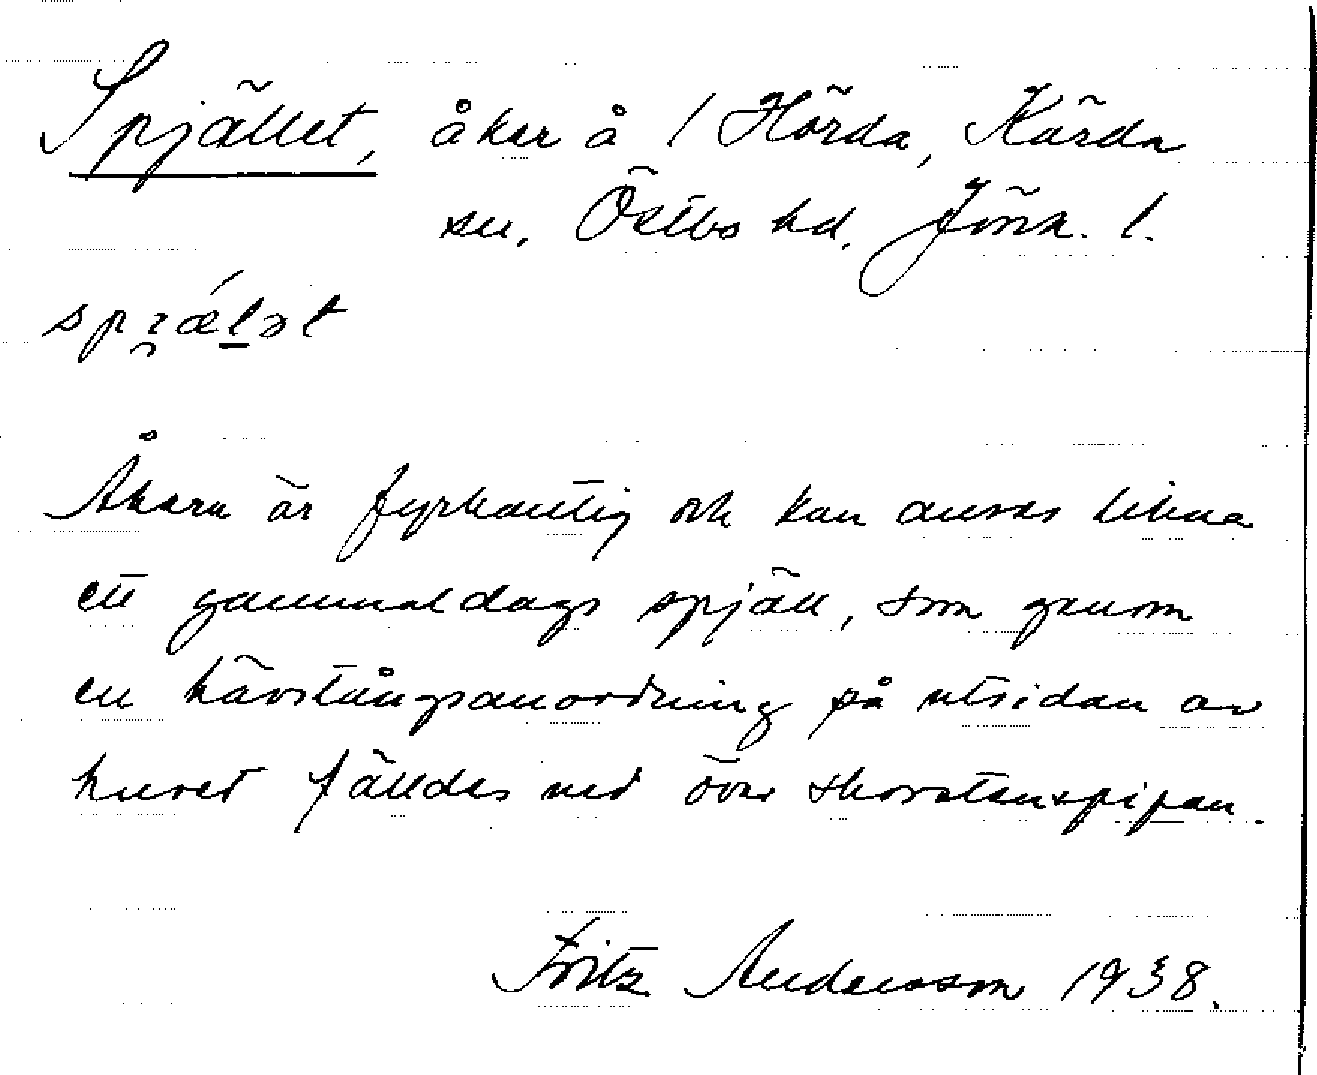 Spjället, åker å 1 Hörda, Kärda
sn, Östbo hd, Jönk. l.
spi̯ǽl̠ət
Åkern är fyrkantig och kan anses likna
ett gammaldags spjäll, som genom
en hävstångsanordning på utsidan av
huset fälldes ned över skorstenspipan.
Fritz Andersson 1938.